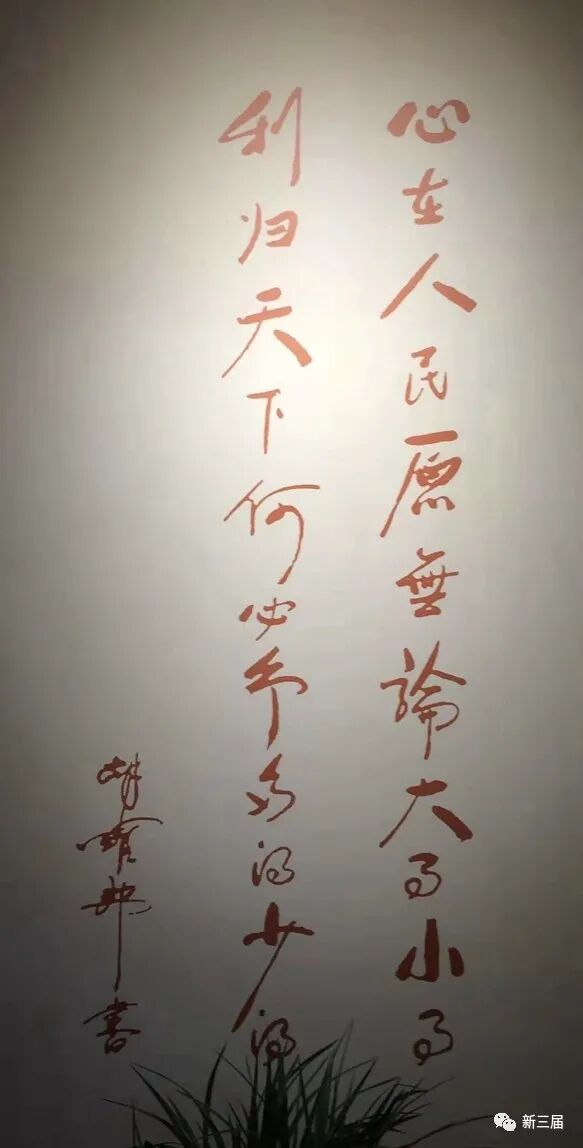 心在人民原無論大事小事
利归天下何必争多得少得
胡耀邦書
新三届